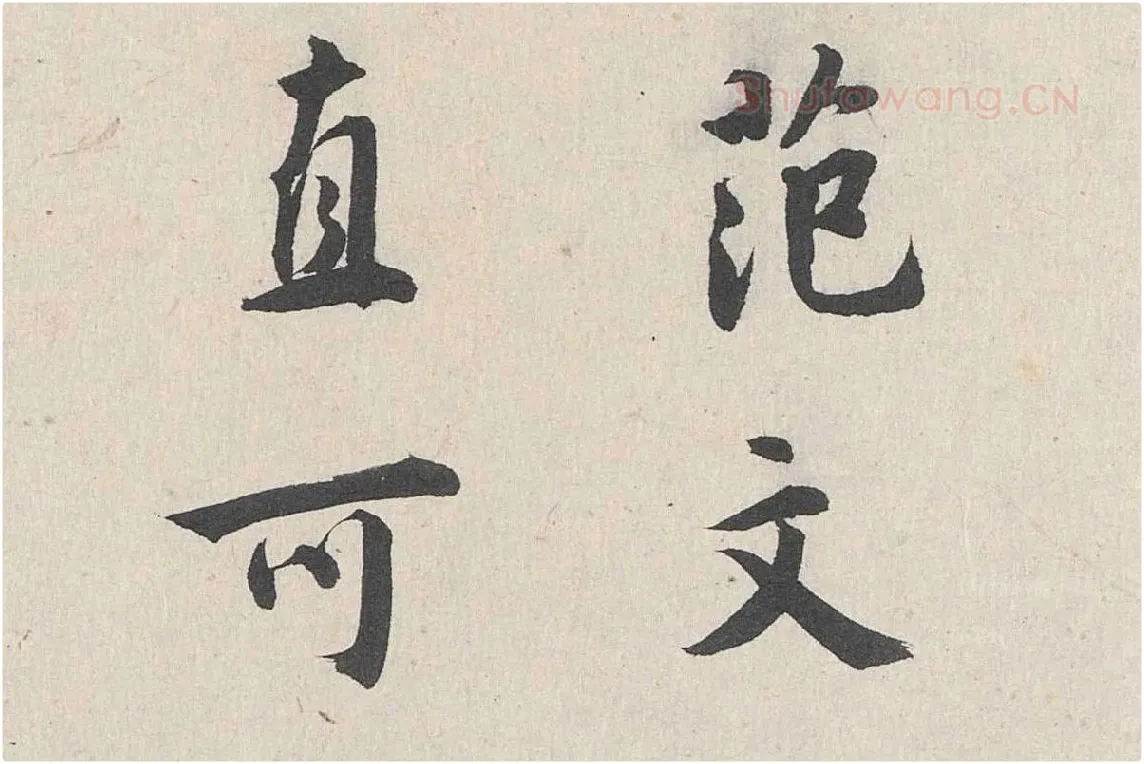 范文
直可
Shufawang.CN